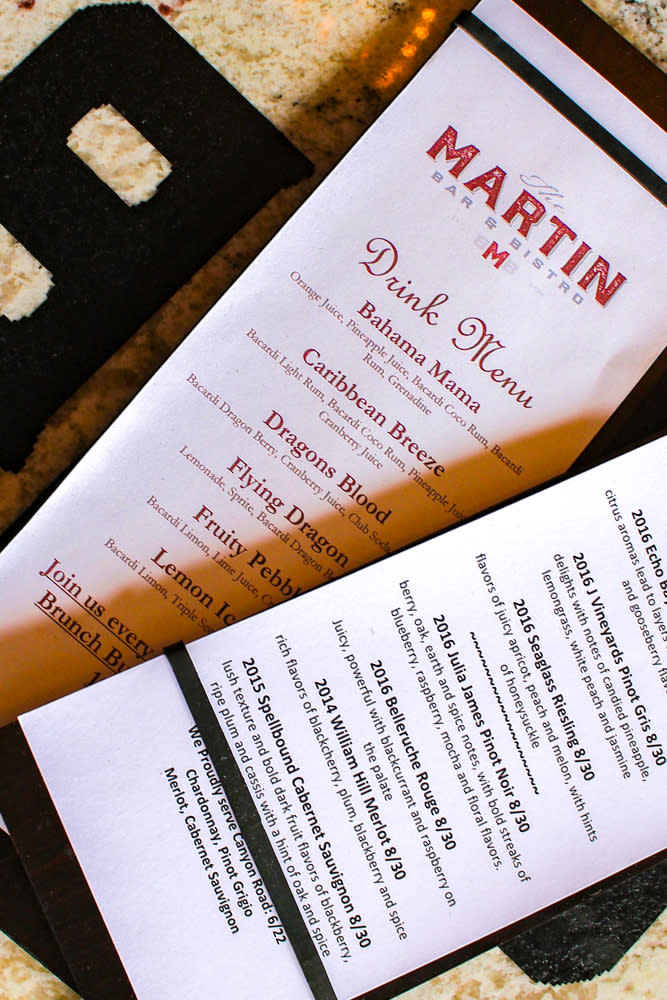 The
MARTIN
BAR & BISTRO
Drink Menu
Bahama Mama
Orange Juice, Pineapple Juice, Bacardi Coco Rum, Bacardi
Rum, Grenadine
Caribbean Breeze
Bacardi Light Rum, Bacardi Coco Rum, Pineapple Juice
Cranberry Juice
Dragons Blood
Bacardi Dragon Berry, Cranberry Juice, Club Soda
Flying Dragon
Lemonade, Sprite, Bacardi Dragon
Fruity
Bacardi Limon, Lime Juice,
Lemon
Bacardi Limon, Triple
Join us every
Brunch
2016
citrus aromas lead to
and gooseberry
2016 J Vineyards Pinot Gris 8/30
delights with notes of candied pineapple,
lemongrass, white peach and jasmine
2016 Seaglass Riesling 8/30
flavors of juicy apricot, peach and melon, with hints
of honeysuckle
~~~~~~~~~~~~~~~~~~
2016 Julia James Pinot Noir 8/30
berry, oak, earth and spice notes, with bold streaks of
blueberry, raspberry, mocha and floral flavors.
2016 Belleruche Rouge 8/30
Juicy, powerful with blackcurrant and raspberry on
the palate
2014 William Hill Merlot 8/30
rich flavors of blackcherry, plum, blackberry and spice
2015 Spellbound Cabernet Sauvignon 8/30
lush texture and bold dark fruit flavors of blackberry,
ripe plum and cassis with a hint of oak and spice
We Proudly serve Canyon Road: 6/22
Chardonnay, Pinot Grigio
Merlot, Cabernet Sauvignon